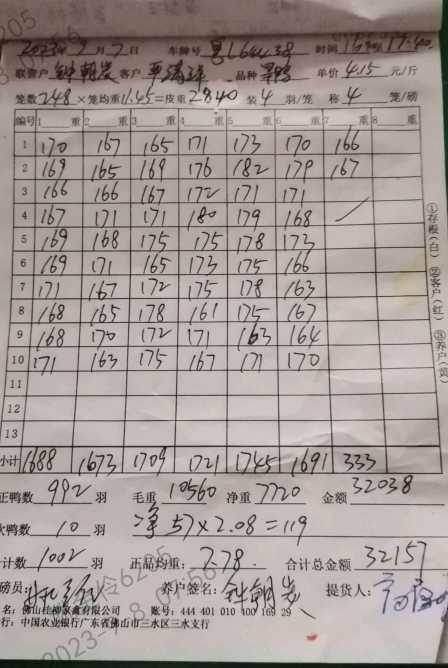 2023年7月7日 车牌号 时间
联营户 客户 品种 单价 4.15 元/斤
笼数 248 × 笼均重 11.45 = 皮重 2840 装 4 羽/笼 称 4 笼/磅
编号 1 重 2 重 3 重 4 重 5 重 6 重 7 重 8 重
1 170 167 165 171 173 170 166
2 169 165 169 176 182 179 167
3 166 166 167 172 171 171
4 167 171 171 180 179 168
5 169 168 175 175 178 173
6 169 171 165 173 175 166
7 171 167 172 175 178 163
8 168 165 178 161 175 167
9 168 170 172 171 163 164
10 171 163 175 167 171 170
11
12
13
小计 1688 1673 1709 1721 1745 1691 333
正鸭数 992 羽 毛重 10560 净重 7720 金额 32038
次鸭数 10 羽 净 57 × 2.08 = 119
合计数 1002 羽 正品均重: 7.78 合计总金额 32157
磅员: 养户签名: 提货人:
名: 佛山桂柳家禽有限公司 账号: 444 401 010 400 169 29
行: 中国农业银行广东省佛山市三水区三水支行
①存根(白) ②客户(红) ③养户(黄)